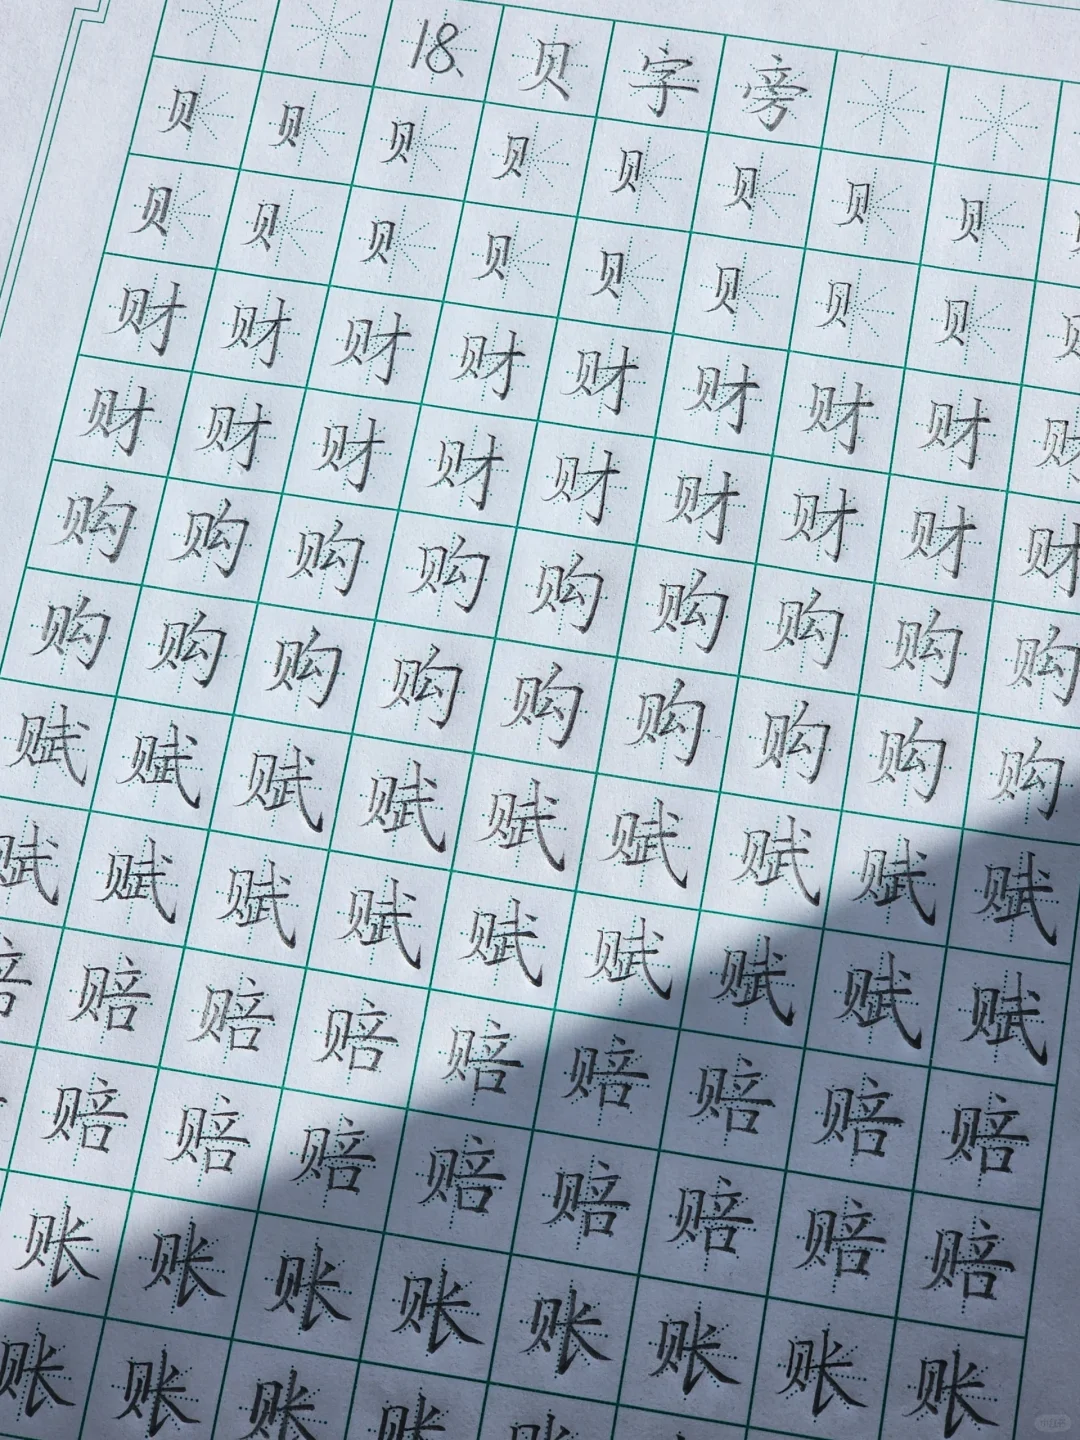 18、贝字旁
贝贝贝贝贝贝贝贝
贝贝贝贝贝贝贝贝贝
财财财财财财财财财
财财财财财财财财财
购购购购购购购购购
购购购购购购购购购
赋赋赋赋赋赋赋赋赋
赋赋赋赋赋赋赋赋赋
赔赔赔赔赔赔赔赔赔
赔赔赔赔赔赔赔赔
账账账账账账账账
账账账账